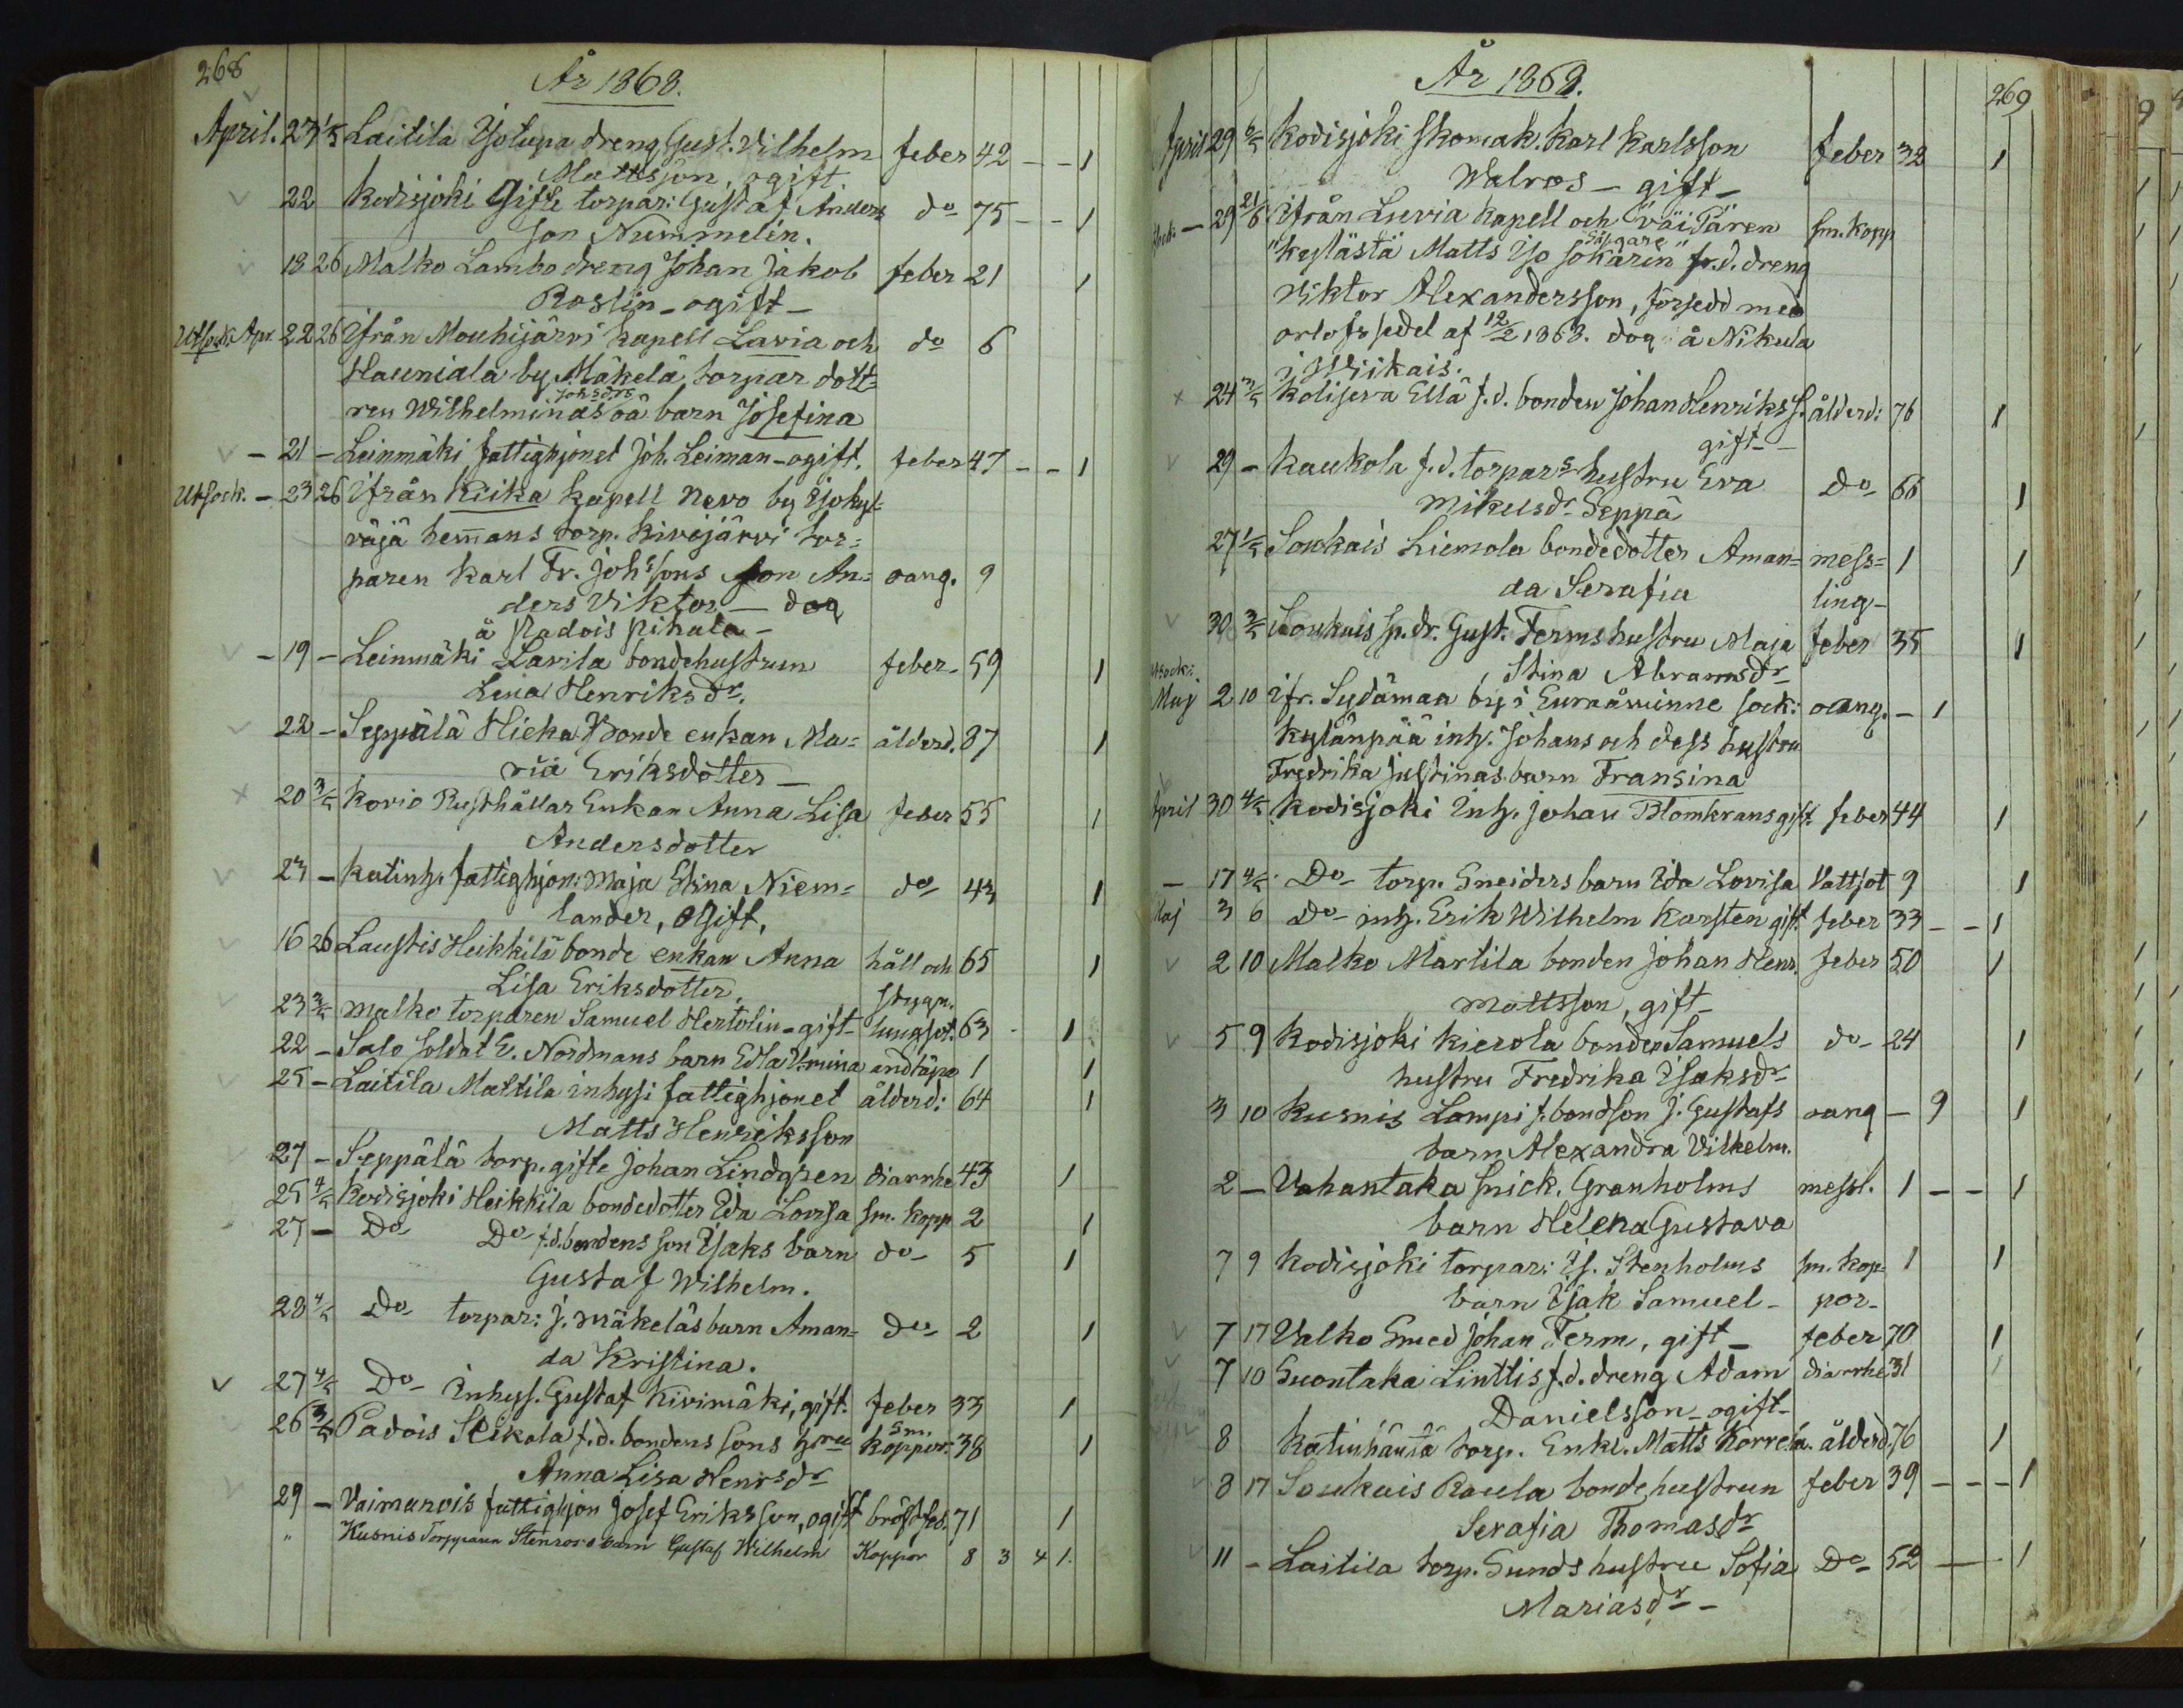 268
År 1868.
April. 23 1/5 Laitila Ysotupa dreng Gust. Vilhelm feber 42 - - 1
Mattsson, ogift
22 Kodisjoki Gifte torpar: Gustaf Anders do 75 - - 1
son Nummelin.
18 26 Malko Lambo dreng Johan Jakob feber 21 1
Roslin - ogift -
Utsock. Apr. 22 26 Ifrån Mouhijärvi Kapell Lavia och do 6
Hauniala by Mäkelä, torpar dott=
ren Wilhelminas Johsdrs oä barn Josefina
- 21 - Leinmäki fattighjonet Joh. Leiman - ogift. feber 47 - - 1
Utsock. - 23 26 Ifrån Kiika Kapell Nevo by
räjä hemans torp. Kivijärvi tor=
paren Karl Fr. Johssons son An= oang. 9
ders Viktor - dog
å Padois Pihala -
- 19 - Leinmäki Lavila bondehustrun feber - 59 1
Lena Henriksdr.
22 - Seppälä Hicka Bonde enkan Ma= ålderd. 87 1
ria Eriksdotter -
20 3/5 Korio Rusthållar Enkan Anna Lisa feber 55 1
Andersdotter
23 - Katinh. fattighjon: Maja Stina Niem= do 43 1
lander, ogift,
16 26 Laustis Heikkilä bonde enkan Anna håll och 65 1
Lisa Eriksdotter. stygn.
23 3/5 Malko torparen Samuel Hertolin - gift - lungsot. 63 - 1
22 - Salo soldat E. Nordmans barn Edla Vsmina andtäpa 1 1
25 - Laitila Mattila inhysi fattighjonet ålderd: 64 1
Matts Henriksson
27 - Seppälä torp. gifte Johan Lindgren diarrhe 43 1
25 4/5 Kodisjoki Heikkila bondedotter Ida Lovisa sm. kopp 2
27 - Do Do f.d. bondens son Isaks barn do - 5 1
Gustaf Wilhelm.
28 4/5 Do torpar: J. Mäkeläs barn Aman= do 2 1
da Kristina.
27 4/5 Do - Inhys. Gustaf Kivimäki, gift. feber 33 1
26 3/5 Padois Seikola f.d. bondens sons hru sm. koppor. 38 1
Anna Lisa Henrsdr
29 - Vaimarois fattighjon Josef Eriksson, ogift bröstfeb. 71 1
" Kusnis Torpparen Stenroos barn Gustaf Wilhelm Koppor 8 3 4 1.
269
År 1868.
April 29 6/5 Kodisjoki skomak. Karl Karlsson feber 32 1
Walros - gift -
- 29 21/6 Ifrån Luvia Kapell och Väi Pären sm. kopp
"kylästä Matts Iso Sokärin" fr. d. dreng
Viktor Alexandersson, försedd med
orlofssedel af 12/2 1868. dog å Nikula
i Wiikais.
24 3/5 Kolijeva Ellä f.d. bonden Johan Henrikss. ålderd: 76 1
gift -
29 - Kaukola f.d. torpars hustru Eva do 66 1
Mikusdr Seppä
27 1/5 Soukais Liemola bondedotter Aman= mess= 1 1
da Serafia ling -
30 3/5 Soukais sp. dr. Gust. Ferms hustru Maja feber 35 1
Stina Abramsdr
Utsock:
Maj 2 10 Ifr. Sydämaa by i Euraåminne sock: oang. - 1
Kylänpää inh. Johans och dess hustru
Fredrika Justinas barn Fransina
April 30 4/5 Kodisjoki Inh. Johan Blomkrans gift. feber 44 1
- 17 4/5 Do - torp. Sneiders barn Ida Lovisa Vattsot 9 1
Maj 3 6 Do - inh. Erik Wilhelm Karsten gift. feber 33 - - 1
2 10 Malko Martila bonden Johan Henr. feber 50 1
Mattsson, gift -
5 9 Kodisjoki Kierola bonden Samuels do - 24 1
hustru Fredrika Isaksdr
3 10 Kusnis Lampi f. bondson J. Gustafs oang - 9 1
barn Alexandra Vilhelm.
2 - Vahantaka snick. Granholms messl. 1 - - 1
barn Helena Gustava
7 9 Kodisjoki torpar: Is. Stenholms sm. kop= 1 1
barn Isak Samuel - por -
7 17 Valko Smed Johan Ferm, gift - feber 70 1
7 10 Suontaka Linttis f.d. dreng Adam diarrhe 31 1
Danielsson - ogift -
8 Katinhänta torp. Enkl. Matts Korrela. ålderd. 76 1
8 17 Soukais Raula bonde hustrun feber 39 - - - 1
Serafia Thomasdr
11 - Laitila torp. Sunds hustru Sofia Do - 52 - - 1
Mariasdr -